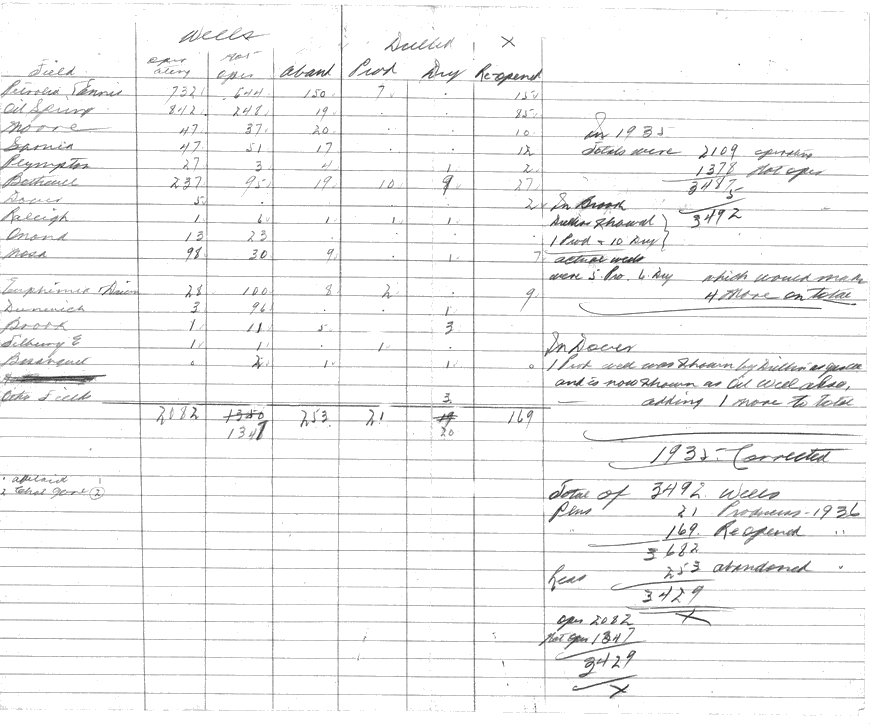 Wells
Drilled X
Field oper ating not oper aband Prod Dry Re-opened
Petrolia Ennis 732 644 150 7 . 154
Oil Spring 842 248 19 . . 85
Moore 47 37 20 . . 10
Sarnia 47 51 17 . . 12
Plympton 27 3 4 . 1 2
Bothwell 237 95 19 10 9 27
Dover 5 . 2
Raleigh 1 6 1 1 1
Onond 13 23
Mosa 98 30 9 . 1 7
Euphemia & Dawn 28 100 8 2 9
Dunwich 3 96 1
Brook 1 11 5 3
Tilbury E 1 1 1
Bosanquet 0 2 1 1 0
Fields 3
2082 1350 253 21 19 169
1347 20
1
2 (2)
In 1935
Totals were 2109 operating
1378 Not oper
3487
5
3492
In Brook
Driller showed
1 Prod + 10 Dry
actual wells
were 5 Pro. 6 Dry which would make
4 More on total
In Dover
1 Prod well was shown by Driller as gas well
and is now shown as Oil Well also,
adding 1 more to total
1935 - Corrected
Total of 3492 Wells
Plus 21 Producers - 1936
" 169 Reopened "
3682
Less 253 abandoned "
3429
X
oper 2082
Not oper 1347
3429
X